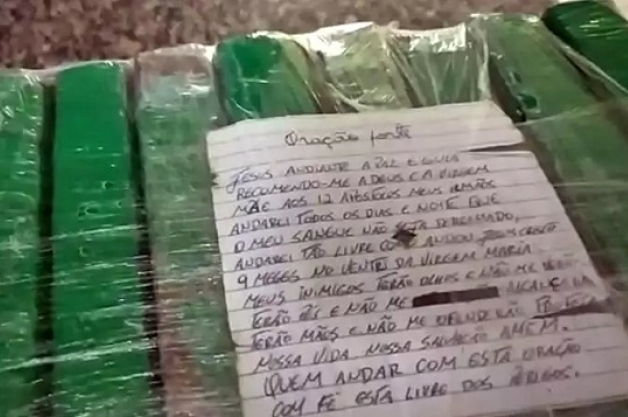 Oração forte
JESUS ADIANTE A PAZ E GUIA
RECOMENDO-ME A DEUS E A VIRGEM
MÃE AOS 12 APOSTOLOS MEUS IRMÃOS
ANDAREI TODOS OS DIAS E NOITE QUE
O MEU SANGUE NÃO SEJA DERRAMADO,
ANDAREI TÃO LIVRE COMO ANDOU JESUS CRISTO
9 MESES NO VENTRE DA VIRGEM MARIA
MEUS INIMIGOS TERÃO OLHOS E NÃO ME VERÃO
TERÃO PÉS E NÃO ME ALCANÇARÃO
TERÃO MÃOS E NÃO ME OFENDERÃO
NOSSA VIDA NOSSA SALVAÇÃO AMEM.
QUEM ANDAR COM ESTA ORAÇÃO
COM FÉ ESTA LIVRE DOS PERIGOS.